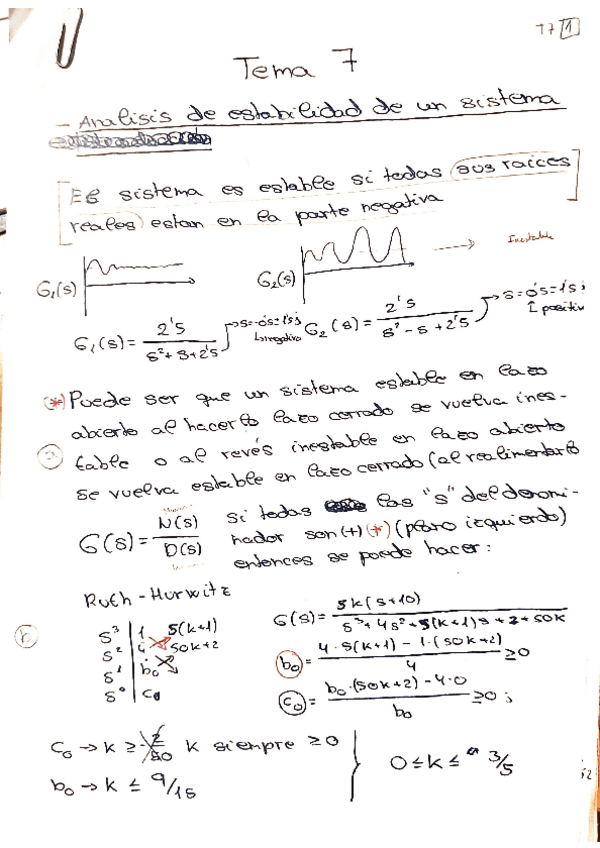 T7 1
Tema 7
- Analisis de estabilidad de un sistema
El sistema es estable si todas sus raices
reales estan en la parte negativa
G₁(s)
G₂(s)
Inestable
G₁(s) = 2's / s²+s+2's
s=-0's±1's j
negativo
G₂(s) = 2's / s²-s+2's
s=0's±1's j
positiv
(*) Puede ser que un sistema estable en lazo
abierto al hacerlo lazo cerrado se vuelva ines-
table o al revés inestable en lazo abierto
se vuelva estable en lazo cerrado (al realimentarlo
G(s) = N(s) / D(s)
si todas las "s" del denomi-
nador son (+) (*) (plano izquierdo)
entonces se puede hacer:
Ruth-Hurwitz
G(s) = 5k(s+10) / s³+4s²+5(k+1)s+2+50k
b
s³ | 1 5(k+1)
s² | 4 50k+2
s¹ | b₀
s⁰ | c₀
b₀ = 4·5(k+1) - 1·(50k+2) / 4 ≥0
c₀ = b₀·(50k+2) - 4·0 / b₀ ≥0;
c₀ → k ≥ -2/50 k siempre ≥0
b₀ → k ≤ 9/15
0 ≤ k ≤ 3/5